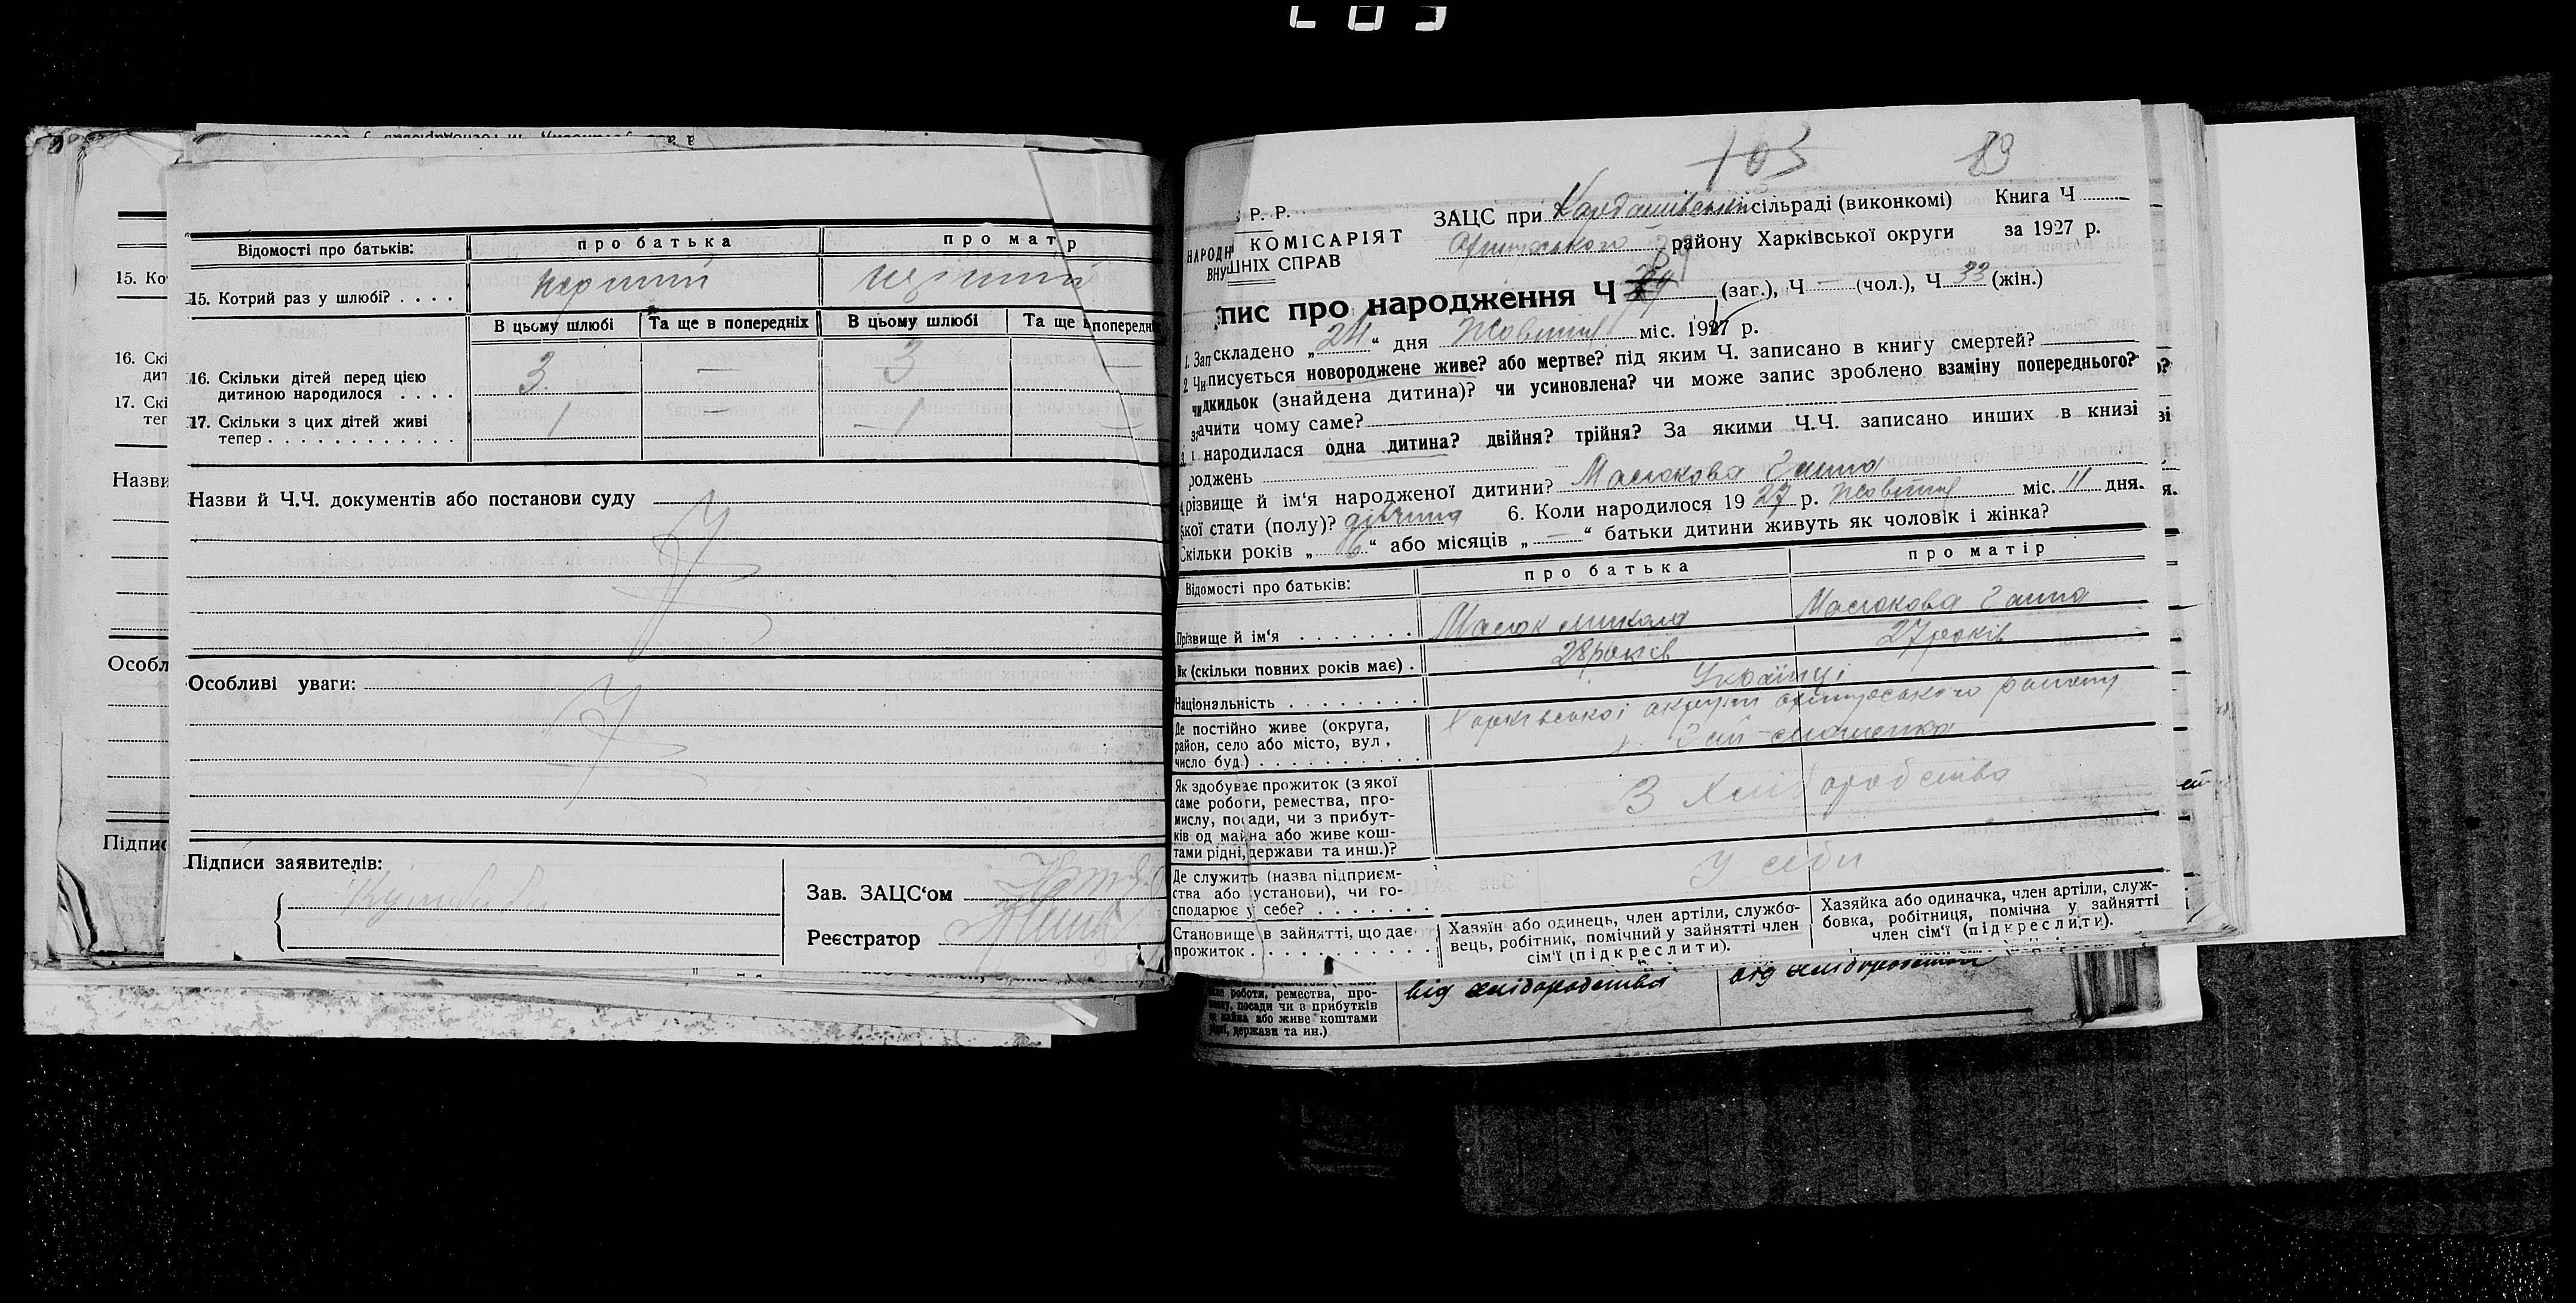 Відомості про батьків: про батька про матір
15. Котрий раз у шлюбі? . . . . перший перший
В цьому шлюбі Та ще в попередніх В цьому шлюбі Та ще в попередн
16. Скільки дітей перед цією
дитиною народилося . . . . 3 — 3 —
17. Скільки з цих дітей живі
тепер . . . . . . . . . . . . 1 — 1 —
Назви й Ч.Ч. документів або постанови суду
Особливі уваги:
Підписи заявителів:
Зав. ЗАЦС‘ом
Реєстратор
15. Ко
16. Скі
дит
17. Скі
теп
Назви
Особл
Підпис
103 83
Р. Р.
НАРОДН КОМІСАРІЯТ
ВНУ ШНІХ СПРАВ
ЗАЦС при сільраді (виконкомі) Книга Ч
Охтирського району Харківської округи за 1927 р.
пис про народження Ч (заг.), Ч — (чол.), Ч 33 (жін.)
1. Зап складено „24“ дня Жовтня міс. 1927 р.
2. Чи писується новороджене живе? або мертве? під яким Ч. записано в книгу смертей?
чи дкидьок (знайдена дитина)? чи усиновлена? чи може запис зроблено взаміну попереднього?
за ачити чому саме?
народилася одна дитина? двійня? трійня? За якими Ч.Ч. записано инших в книзі
роджень
різвище й ім‘я народженої дитини? Масюкова Ганна
кої стати (полу)? дівчина 6. Коли народилося 1927 р. Жовтня міс. 11 дня.
Скільки років „ “ або місяців „—“ батьки дитини живуть як чоловік і жінка?
Відомості про батьків: про батька про матір
Прізвище й ім‘я . . . . . . . Масюк Микола Масюкова Ганна
Вік (скільки повних років має) . 28 років 27 років
Національність . . . . . . . . Українці
Де постійно живе (округа,
район, село або місто, вул,
число буд.) . . . . . . . . . . Харківської округи Охтирського району
Як здобуває прожиток (з якої
саме роботи, ремества, про-
мислу, посади, чи з прибут-
ків од майна або живе кош-
тами рідні, держави та инш.)? З Хліборобства
Де служить (назва підприєм-
ства або установи), чи го-
сподарює у себе? . . . . . . . У себи
Становище в зайнятті, що дає
прожиток . . . . . . . . . . .
Хазяїн або одинець, член артіли, службо-
вець, робітник, помічний у зайнятті член
сім‘ї (підкреслити).
Хазяйка або одиначка, член артіли, служ-
бовка, робітниця, помічна у зайнятті
член сім‘ї (підкреслити).
роботи, ремества, про-
посади чи з прибутків
майна або живе коштами
держави та ин.)
від хліборобства від хліборобства